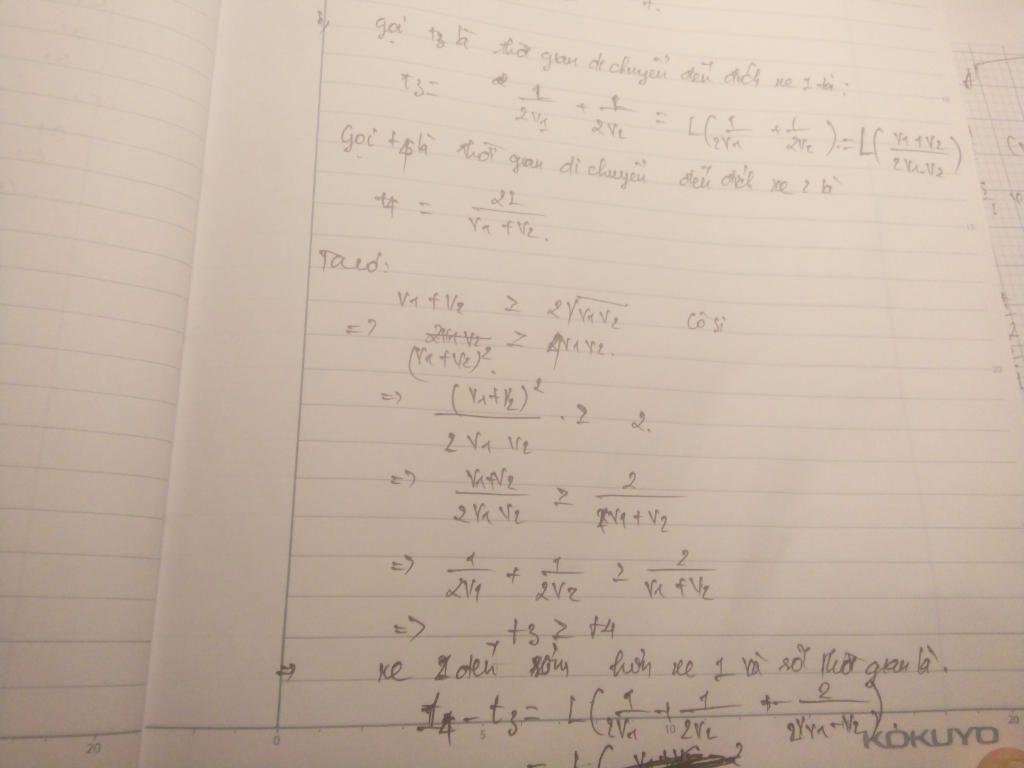 gọi t3 là thời gian di chuyển đến đích xe 1 là:
t3 = 1/2v1 + 1/2v2 = L(1/2v1 + 1/2v2) = L(v1+v2/2v1.v2)
Gọi t4 là thời gian di chuyển đến đích xe 2 là
t4 = 2L/v1+v2.
Ta có:
v1+v2 ≥ 2√v1v2 Cô si
=> (v1+v2)². ≥ 4v1v2.
=> (v1+v2)²/2v1v2 ≥ 2.
=> v1+v2/2v1v2 ≥ 2/v1+v2
=> 1/2v1 + 1/2v2 ≥ 2/v1+v2
=> t3 ≥ t4
=> xe 2 đến sớm hơn xe 1 và số thời gian là.
t4 - t3 = L(1/2v1 + 1/2v2 - 2/v1+v2)
= L(
KOKUYO
20
0
5
10
20